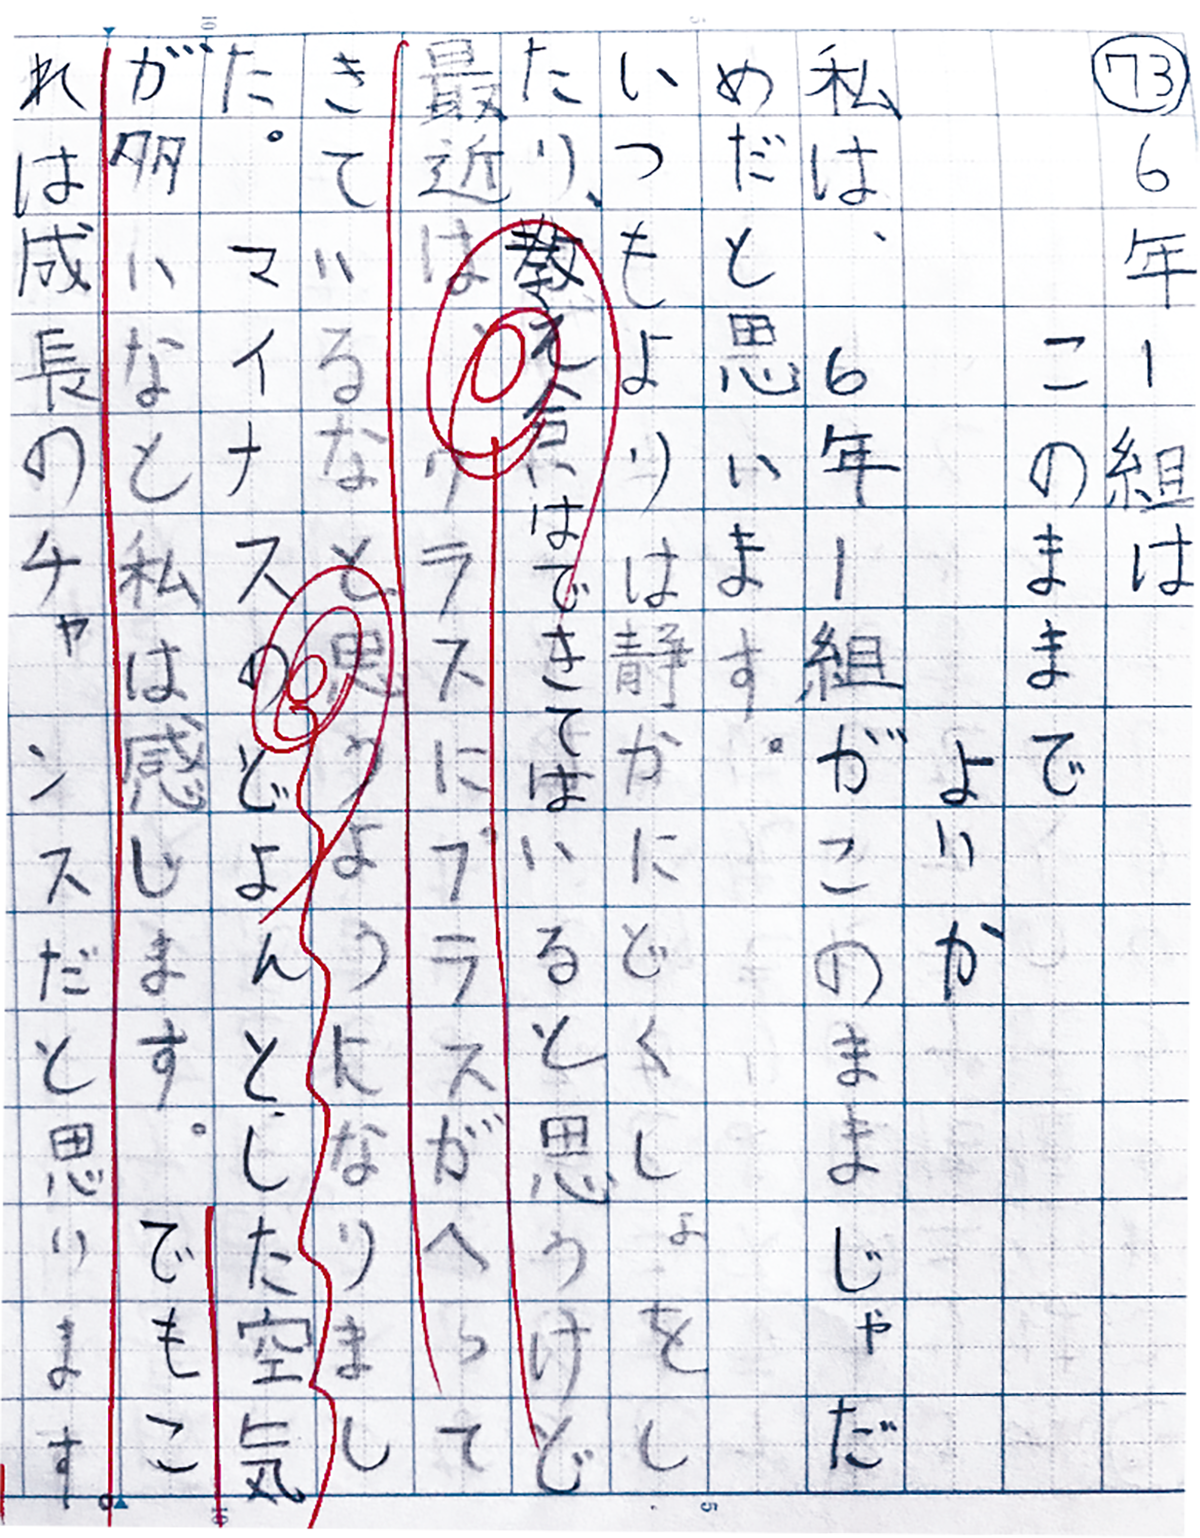 73 6年1組は
このままで
よいか
私は、6年1組がこのままじゃだ
めだと思います。
いつもよりは静かにどくしょをし
たり、教え合いはできてはいると思うけど
最近は、クラスにプラスがへって
きているなと思うようになりまし
た。マイナスのどよんとした空気
が多いなと私は感じます。でもこ
れは成長のチャンスだと思います